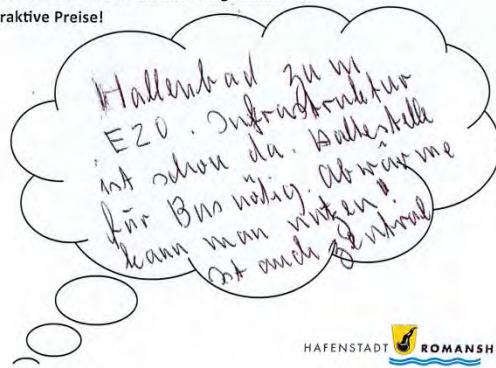 raktive Preise!
Hallenbad zum
EZO. Infrastruktur
ist schon da. Haltestelle
für Bus nötig. Abwärme
kann man nutzen!
Ist auch zentral
HAFENSTADT ROMANSH